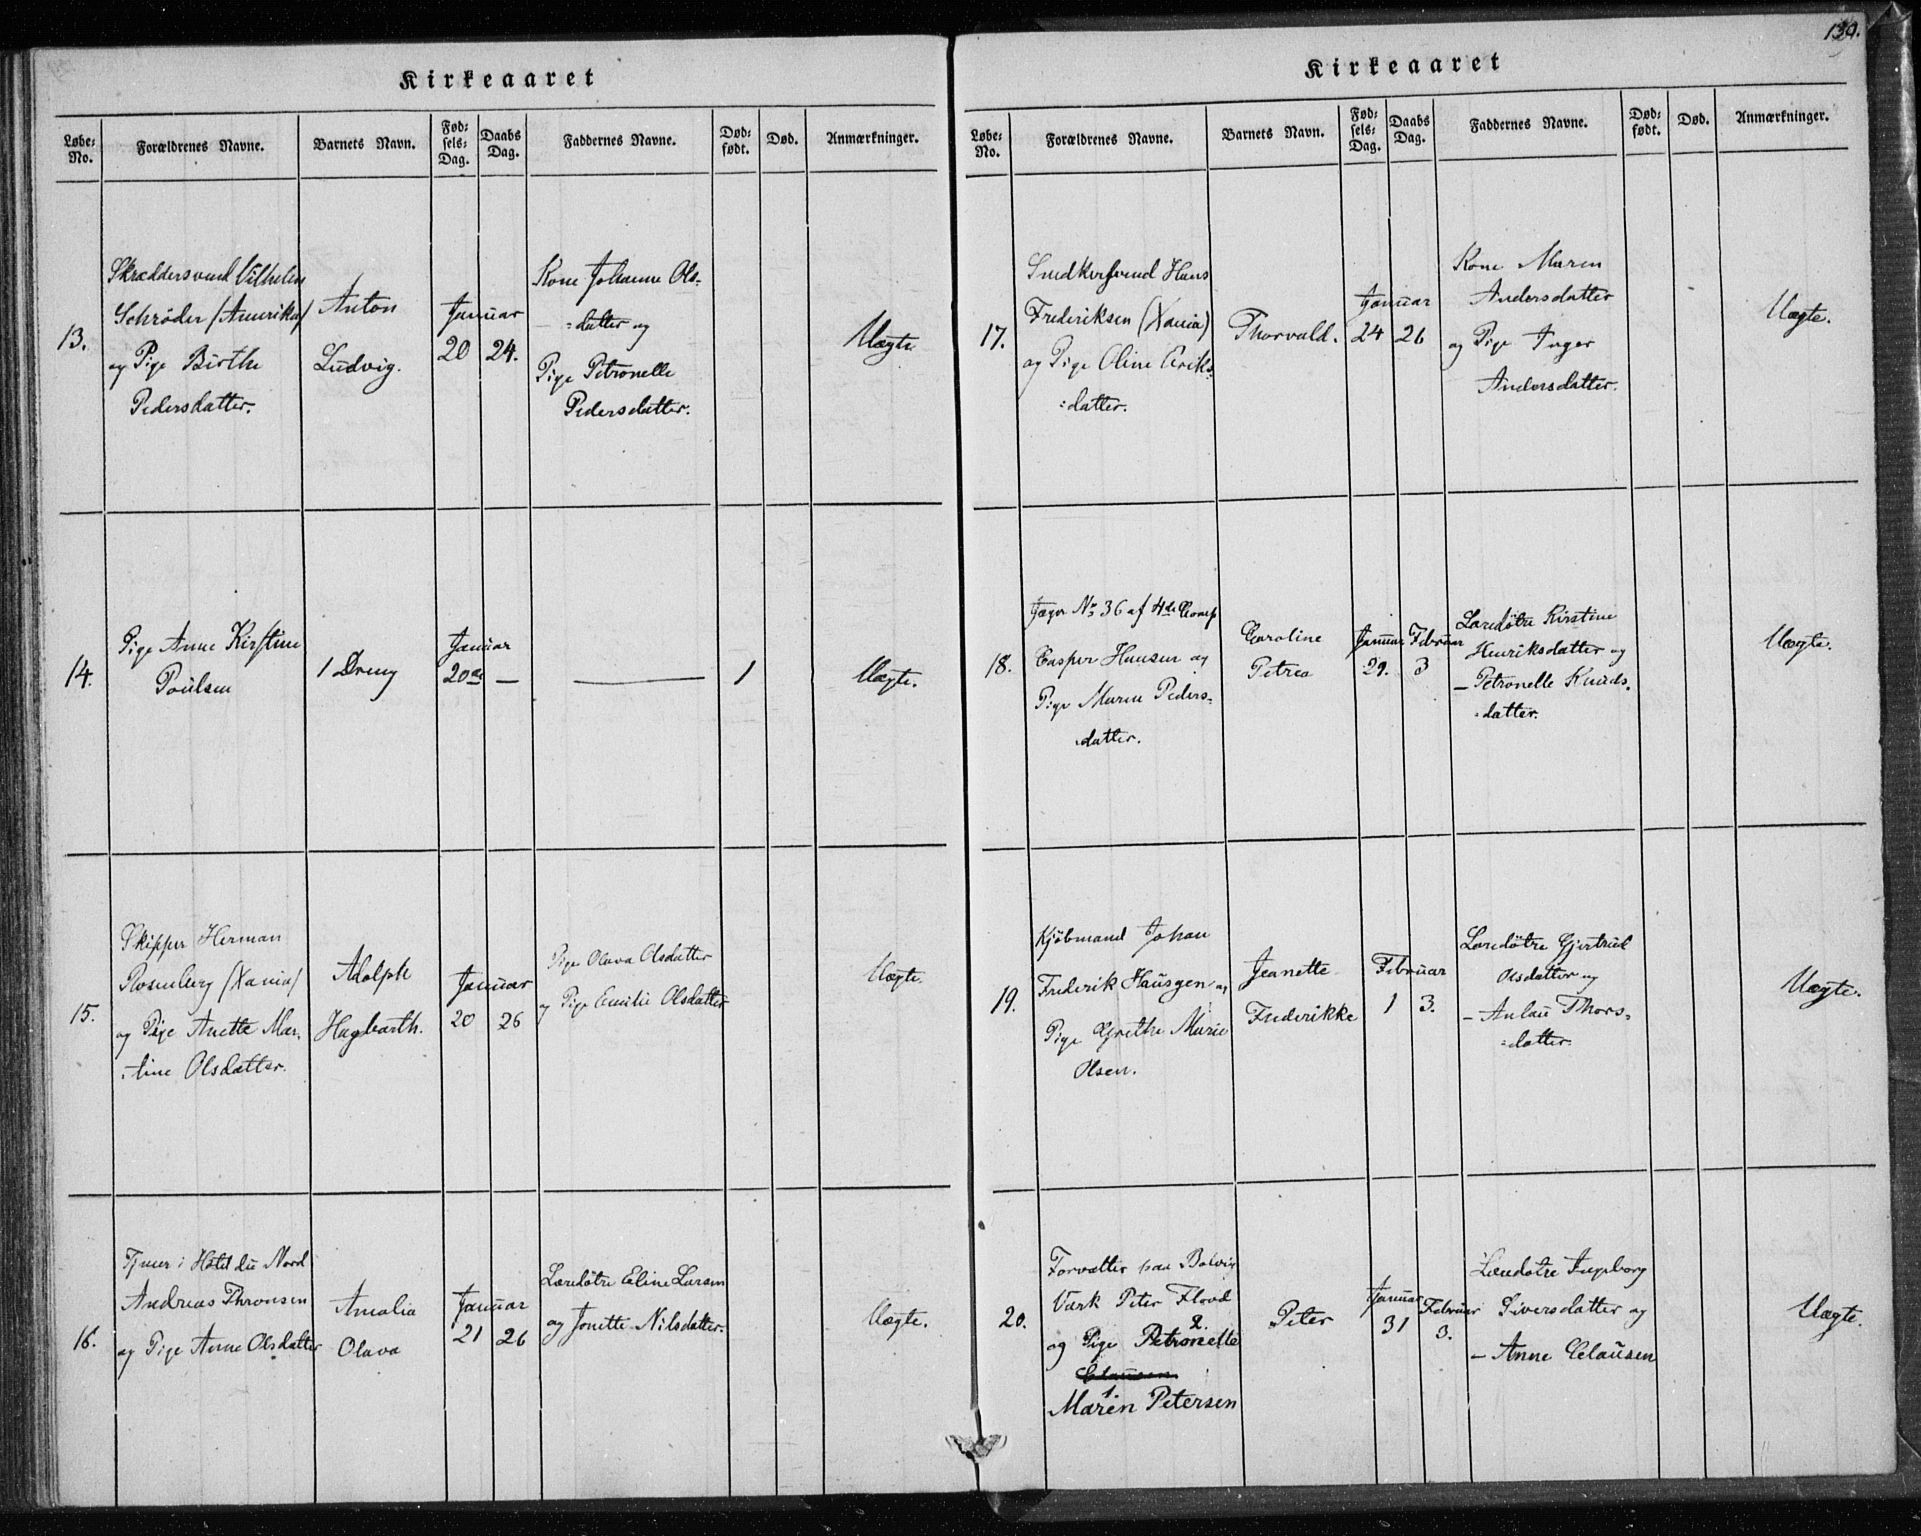 130.
Kirkeaaret
Løbe-No.
Forældrenes Navne.
Barnets Navn.
Fød-sels-Dag.
Daabs Dag.
Faddernes Navne.
Død-født.
Død.
Anmærkninger.
13.
Skræddersvend Vilhelm
Schröder (Amerika)
og Pige Birthe
Pedersdatter.
Anton
Ludvig.
Januar
20 24.
Kone Johanne Ols-
datter og
Pige Petronelle
Pedersdatter.
Uægte
14.
Pige Anne Kirstine
Poülsen
1 Dreng
Januar
20de —
1
Uægte.
15.
Skipper Herman
Rosenberg (Xania)
og Pige Anette Mar-
tine Olsdatter.
Adolph
Hagbarth.
Januar
20 26
Pige Olava Olsdatter
og Pige Emilie Olsdatter
Uægte.
16.
Tjener i Hôtel du Nord
Andreas Thronsen
og Pige Anne Olsdatter
Amalia
Olava
Januar
21 26
Læredøtre Eline Larsen
og Jonette Nilsdatter.
Uægte.
Kirkeaaret
Løbe-No.
Forældrenes Navne.
Barnets Navn.
Fød-sels-Dag.
Daabs Dag.
Faddernes Navne.
Død-født.
Død.
Anmærkninger.
17.
Snedkersvend Hans
Frederiksen (Xania)
og Pige Oline Eriks-
datter.
Thorvald.
Januar
24 26
Kone Maren
Andersdatter
og Pige Inger
Andersdatter.
Uægte.
18.
Jæger No 36 af 4de Comp
Casper Hansen og
Pige Maren Peders-
datter.
Caroline
Petrea
Januar Februar
29. 3
Læredøtre Kirstine
Henriksdatter og
— Petronelle Knuds-
datter.
Uægte.
19.
Kjöbmand Johan
Frederik Haüsgen og
Pige Grethe Marie
Olsen.
Jeanette
Frederikke
Februar
1 3.
Læredøtre Gjertrud
Olsdatter og
— Anlaü Thors-
datter.
Uægte.
20.
Forvalter paa Bolvig
Værk Peter Flood
2.
og Pige Petronelle
Claüsen
1.
Maren Petersen
Peter
Januar Februar
31 3.
Læredøtre Ingeborg
Siversdatter og
— Anne Clausen
Uægte.